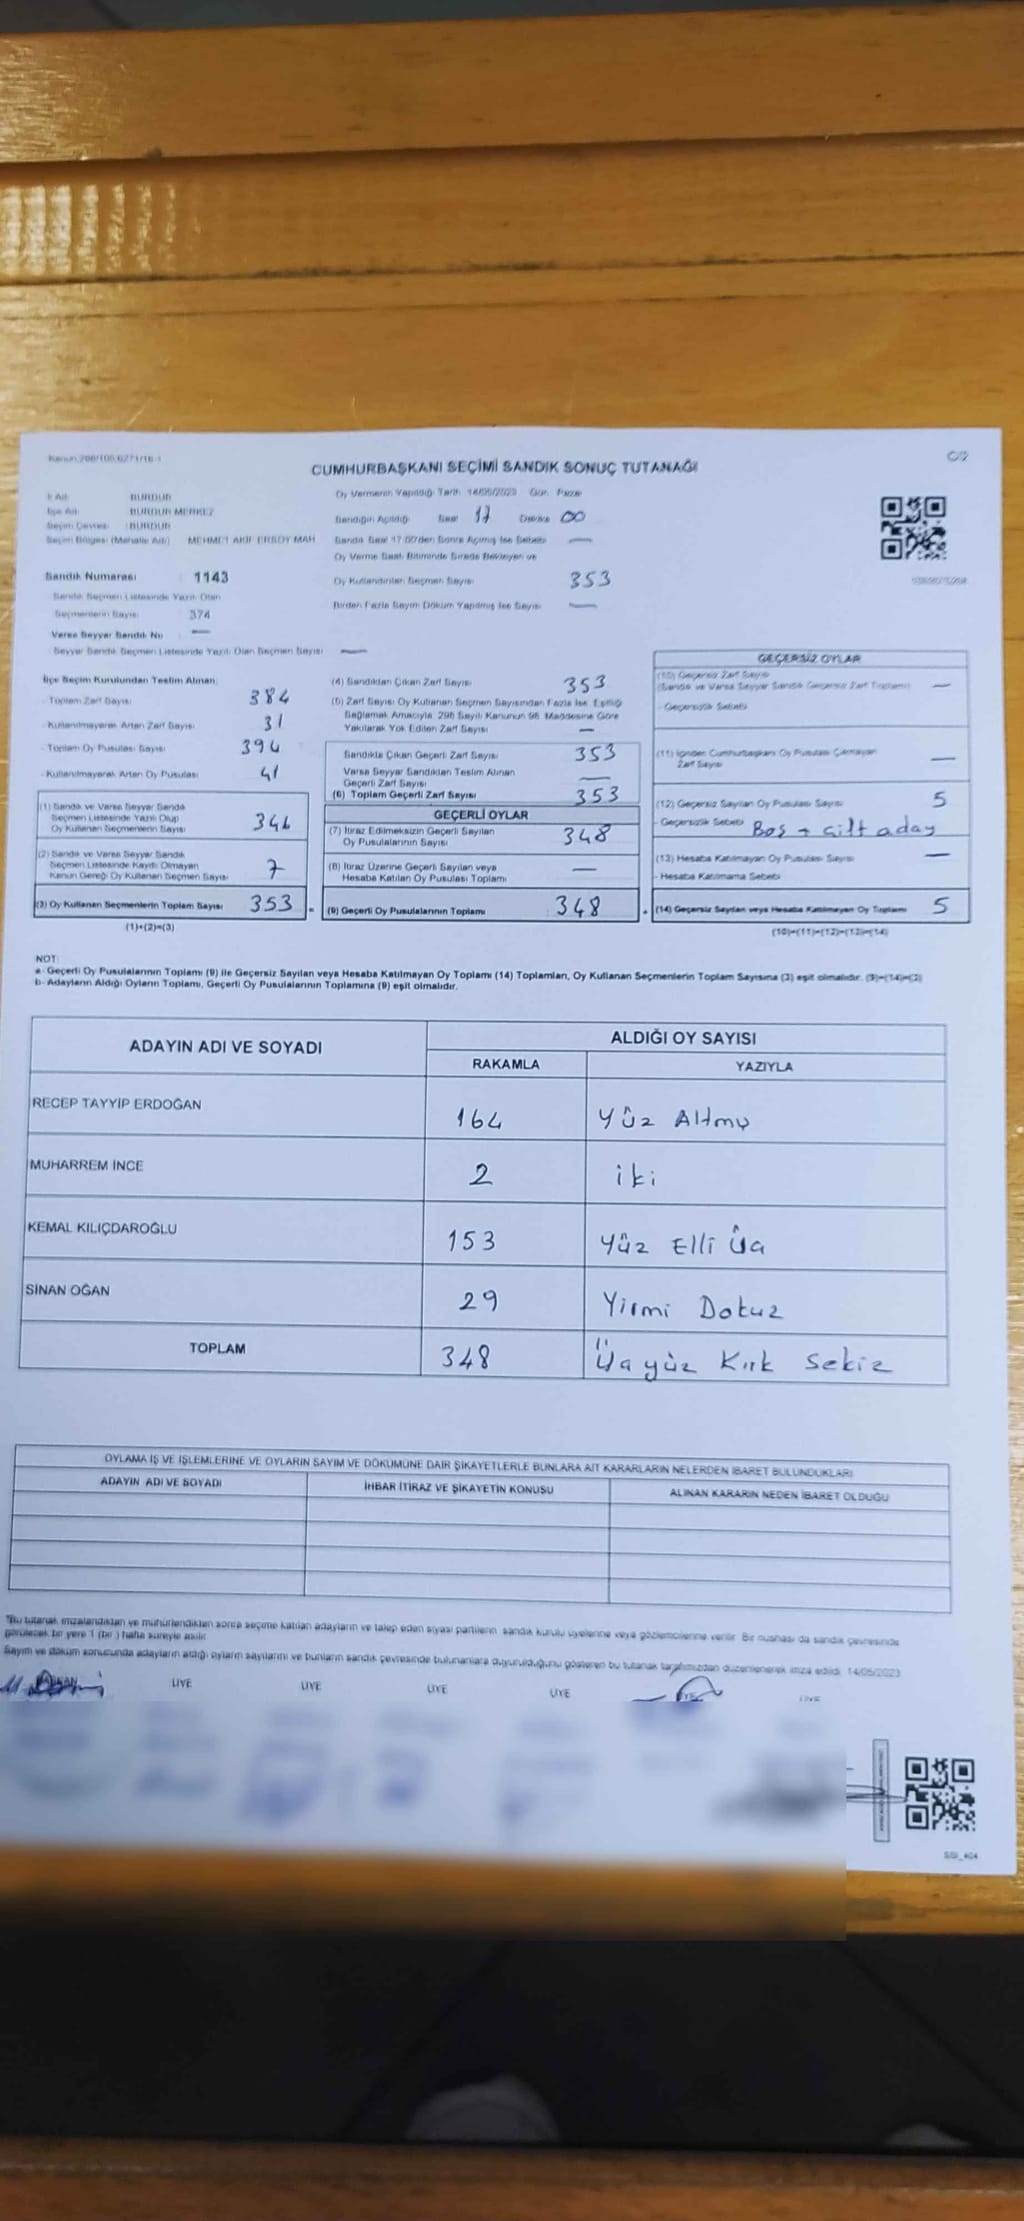 Kanun:298/105,6271/16-1
C/2
CUMHURBAŞKANI SEÇİMİ SANDIK SONUÇ TUTANAĞI
İl Adı : BURDUR
İlçe Adı : BURDUR MERKEZ
Seçim Çevresi : BURDUR
Seçim Bölgesi (Mahalle Adı) MEHMET AKİF ERSOY MAH
Sandık Numarası 1143
Sandık Seçmen Listesinde Yazılı Olan
Seçmenlerin Sayısı 374
Varsa Seyyar Sandık No —
Seyyar Sandık Seçmen Listesinde Yazılı Olan Seçmen Sayısı —
Oy Vermenin Yapıldığı Tarih 14/05/2023 Gün Pazar
Sandığın Açıldığı Saat 17 Dakika 00
Sandık Saat 17:00'den Sonra Açılmış İse Sebebi —
Oy Verme Saati Bitiminde Sırada Bekleyen ve
Oy Kullandırılan Seçmen Sayısı 353
Birden Fazla Sayım Döküm Yapılmış İse Sayısı —
İlçe Seçim Kurulundan Teslim Alınan;
- Toplam Zarf Sayısı 384
- Kullanılmayarak Artan Zarf Sayısı 31
- Toplam Oy Pusulası Sayısı 394
- Kullanılmayarak Artan Oy Pusulası 41
(1) Sandık ve Varsa Seyyar Sandık
Seçmen Listesinde Yazılı Olup
Oy Kullanan Seçmenlerin Sayısı 346
(2) Sandık ve Varsa Seyyar Sandık
Seçmen Listesinde Kayıtlı Olmayan
Kanun Gereği Oy Kullanan Seçmen Sayısı 7
(3) Oy Kullanan Seçmenlerin Toplam Sayısı 353
(1)+(2)=(3)
(4) Sandıktan Çıkan Zarf Sayısı 353
(5) Zarf Sayısı Oy Kullanan Seçmen Sayısından Fazla İse, Eşitliği
Sağlamak Amacıyla 298 Sayılı Kanunun 98. Maddesine Göre
Yakılarak Yok Edilen Zarf Sayısı —
Sandıkta Çıkan Geçerli Zarf Sayısı 353
Varsa Seyyar Sandıktan Teslim Alınan
Geçerli Zarf Sayısı —
(6) Toplam Geçerli Zarf Sayısı 353
GEÇERLİ OYLAR
(7) İtiraz Edilmeksizin Geçerli Sayılan
Oy Pusulalarının Sayısı 348
(8) İtiraz Üzerine Geçerli Sayılan veya
Hesaba Katılan Oy Pusulası Toplamı —
(9) Geçerli Oy Pusulalarının Toplamı 348
GEÇERSİZ OYLAR
(10) Geçersiz Zarf Sayısı
(Sandık ve Varsa Seyyar Sandık Geçersiz Zarf Toplamı) —
- Geçersizlik Sebebi
(11) İçinden Cumhurbaşkanı Oy Pusulası Çıkmayan
Zarf Sayısı —
(12) Geçersiz Sayılan Oy Pusulası Sayısı 5
- Geçersizlik Sebebi Boş + çift aday
(13) Hesaba Katılmayan Oy Pusulası Sayısı —
- Hesaba Katılmama Sebebi
(14) Geçersiz Sayılan veya Hesaba Katılmayan Oy Toplamı 5
(10)+(11)+(12)+(13)=(14)
NOT:
a- Geçerli Oy Pusulalarının Toplamı (9) ile Geçersiz Sayılan veya Hesaba Katılmayan Oy Toplamı (14) Toplamları, Oy Kullanan Seçmenlerin Toplam Sayısına (3) eşit olmalıdır. (9)+(14)=(3)
b- Adayların Aldığı Oyların Toplamı, Geçerli Oy Pusulalarının Toplamına (9) eşit olmalıdır.
ADAYIN ADI VE SOYADI
ALDIĞI OY SAYISI
RAKAMLA YAZIYLA
RECEP TAYYİP ERDOĞAN 164 Yüz Altmış
MUHARREM İNCE 2 iki
KEMAL KILIÇDAROĞLU 153 Yüz Elli Üç
SİNAN OĞAN 29 Yirmi Dokuz
TOPLAM 348 Üçyüz Kırk Sekiz
OYLAMA İŞ VE İŞLEMLERİNE VE OYLARIN SAYIM VE DÖKÜMÜNE DAİR ŞİKAYETLERLE BUNLARA AİT KARARLARIN NELERDEN İBARET BULUNDUKLARI
ADAYIN ADI VE SOYADI İHBAR İTİRAZ VE ŞİKAYETİN KONUSU ALINAN KARARIN NEDEN İBARET OLDUĞU
*Bu tutanak imzalandıktan ve mühürlendikten sonra seçime katılan adayların ve talep eden siyasi partilerin sandık kurulu üyelerine veya gözlemcilerine verilir. Bir nüshası da sandık çevresinde
görülecek bir yere 1 (bir ) hafta süreyle asılır.
Sayım ve döküm sonucunda adayların aldığı oyların sayılarını ve bunların sandık çevresinde bulunanlara duyurulduğunu gösteren bu tutanak tarafımızdan düzenlenerek imza edildi. 14/05/2023
BAŞKAN ÜYE ÜYE ÜYE ÜYE ÜYE ÜYE